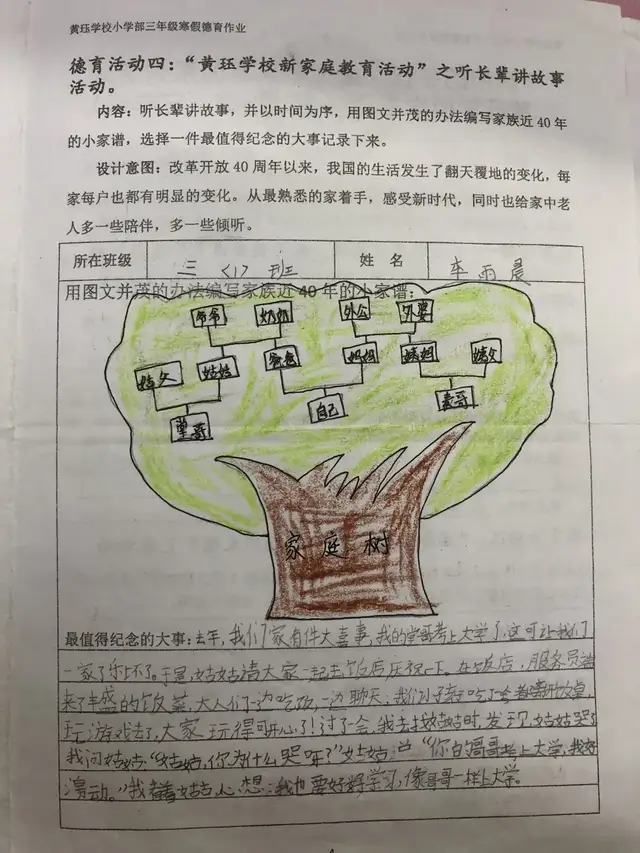 黄珏学校小学部三年级寒假德育作业
德育活动四：“黄珏学校新家庭教育活动”之听长辈讲故事
活动。
内容：听长辈讲故事，并以时间为序，用图文并茂的办法编写家族近 40 年
的小家谱，选择一件最值得纪念的大事记录下来。
设计意图：改革开放 40 周年以来，我国的生活发生了翻天覆地的变化，每
家每户也都有明显的变化。从最熟悉的家着手，感受新时代，同时也给家中老
人多一些陪伴，多一些倾听。
所在班级 三〈1〉班 姓 名 车雨晨
用图文并茂的办法编写家族近 40 年的小家谱：
爷爷 奶奶 外公 外婆
姑父 姑姑 爸爸 妈妈 姨妈 姨父
堂哥 自己 表哥
家庭树
最值得纪念的大事：去年，我们家有件大喜事，我的堂哥考上大学了，这可让我们
一家了不了。于是，姑姑请大家一起去饭店庆祝一下。在饭店，服务员端
来了丰盛的饭菜，大人们一边吃饭，一边聊天，我们小孩吃了
玩游戏去了，大家玩得可开心了！过了一会，我去找姑姑时，发现姑姑哭了
我问姑姑：“姑姑，你为什么哭呀？”姑姑说“你的哥哥考上大学，我好
激动。”我看着姑姑心想：我也要好好学习，像哥哥一样上大学。